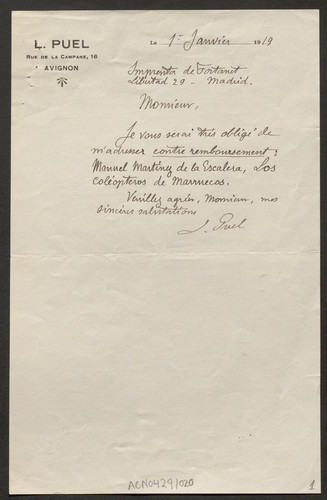 L. PUEL
RUE DE LA CAMPANE, 16
AVIGNON
Le 1er Janvier 1919
Imprenta de Fortanet
Libertad 29 - Madrid.
Monsieur,
Je vous serai très obligé de
m'adresser contre remboursement:
Manuel Martinez de la Escalera, Los
coléopteros de Marruecos.
Veuillez agréer, Monsieur, mes
sincères salutations
L. Puel
ACN0429/020
1